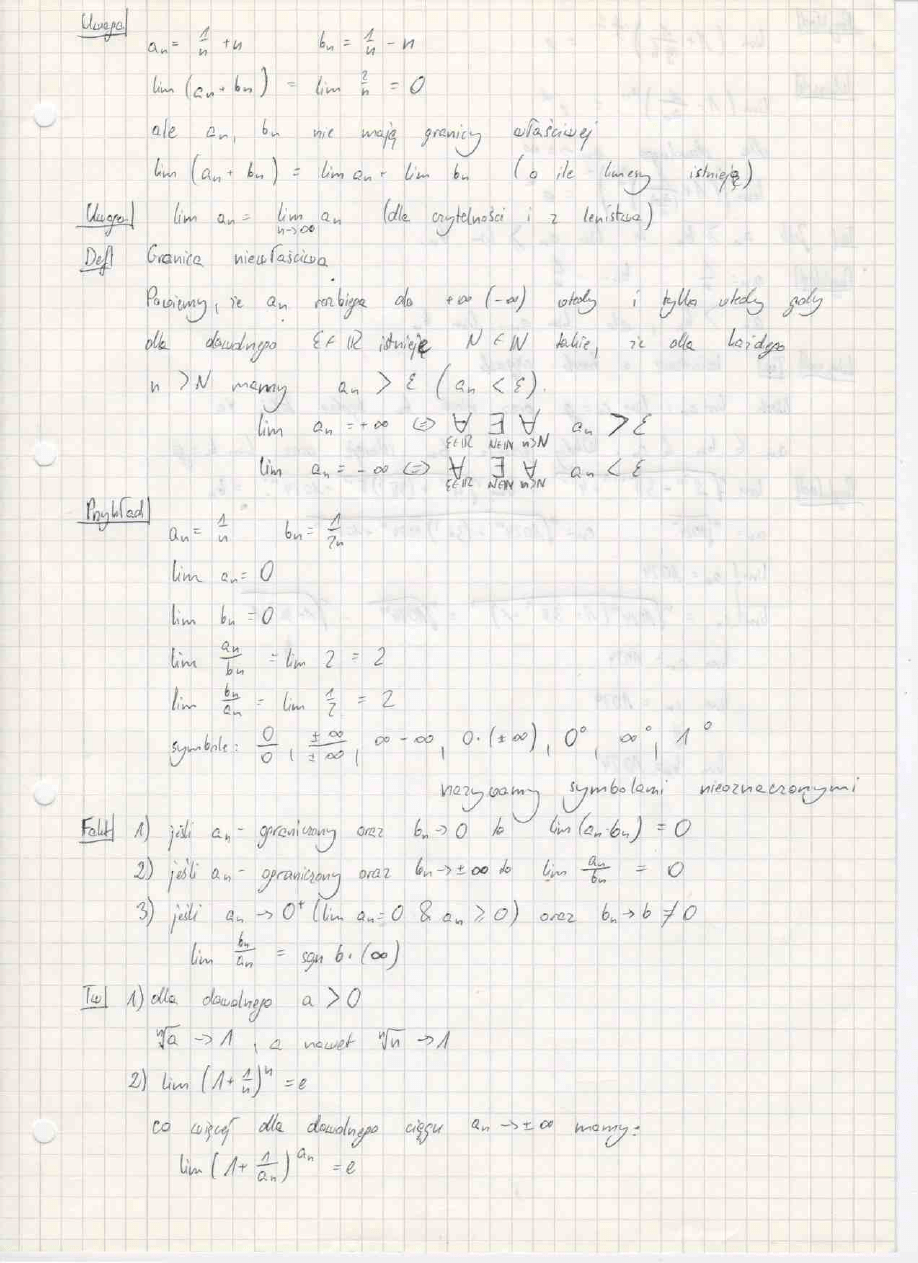 Uwaga
aₙ = 1/n + n    bₙ = 1/n - n
lim (aₙ + bₙ) = lim 2/n = 0
ale aₙ, bₙ nie mają granicy właściwej
lim (aₙ + bₙ) = lim aₙ + lim bₙ (o ile limesy istnieją)
Uwaga lim aₙ = lim n->∞ aₙ (dla czytelności i z lenistwa)
Def Granica niewłaściwa
Powiemy, że aₙ rozbiega do +∞ (-∞) wtedy i tylko wtedy gdy
dla dowolnego ε∈ℝ istnieje N∈ℕ takie, że dla każdego
n > N mamy aₙ > ε (aₙ < ε).
lim aₙ = +∞ <=> ∀ ε∈ℝ ∃ N∈ℕ ∀ n>N aₙ > ε
lim aₙ = -∞ <=> ∀ ε∈ℝ ∃ N∈ℕ ∀ n>N aₙ < ε
Przykład
aₙ = 1/n    bₙ = 1/2n
lim aₙ = 0
lim bₙ = 0
lim aₙ/bₙ = lim 2 = 2
lim bₙ/aₙ = lim 1/2 = 2
symbole: 0/0, ±∞/±∞, ∞-∞, 0·(±∞), 0⁰, ∞⁰, 1⁰
nazywamy symbolami nieoznaczonymi
Fakt 1) jeśli aₙ - ograniczony oraz bₙ -> 0 to lim(aₙ·bₙ) = 0
2) jeśli aₙ - ograniczony oraz bₙ -> ±∞ to lim aₙ/bₙ = 0
3) jeśli aₙ -> 0⁺ (lim aₙ = 0 & aₙ ≥ 0) oraz bₙ -> b ≠ 0
lim bₙ/aₙ = sgn b·(∞)
Tw 1) dla dowolnego a > 0
ⁿ√a -> 1, a nawet ⁿ√n -> 1
2) lim (1 + 1/n)ⁿ = e
co więcej dla dowolnego ciągu aₙ -> ±∞ mamy:
lim (1 + 1/aₙ)^aₙ = e